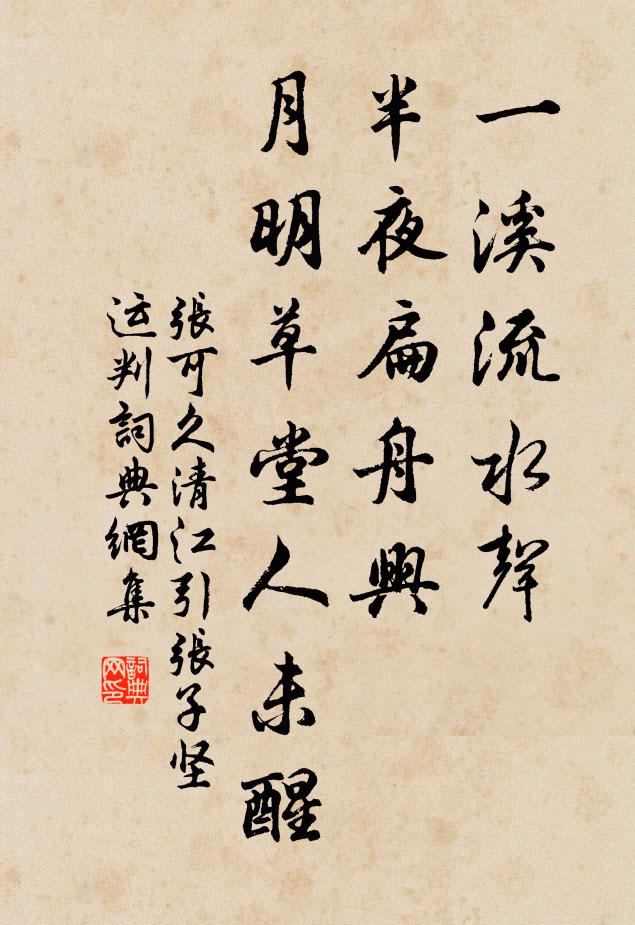 一溪流水聲
半夜扁舟興
月明草堂人未醒
張可久清江引張子坚
运判詞典網集
詞典网印